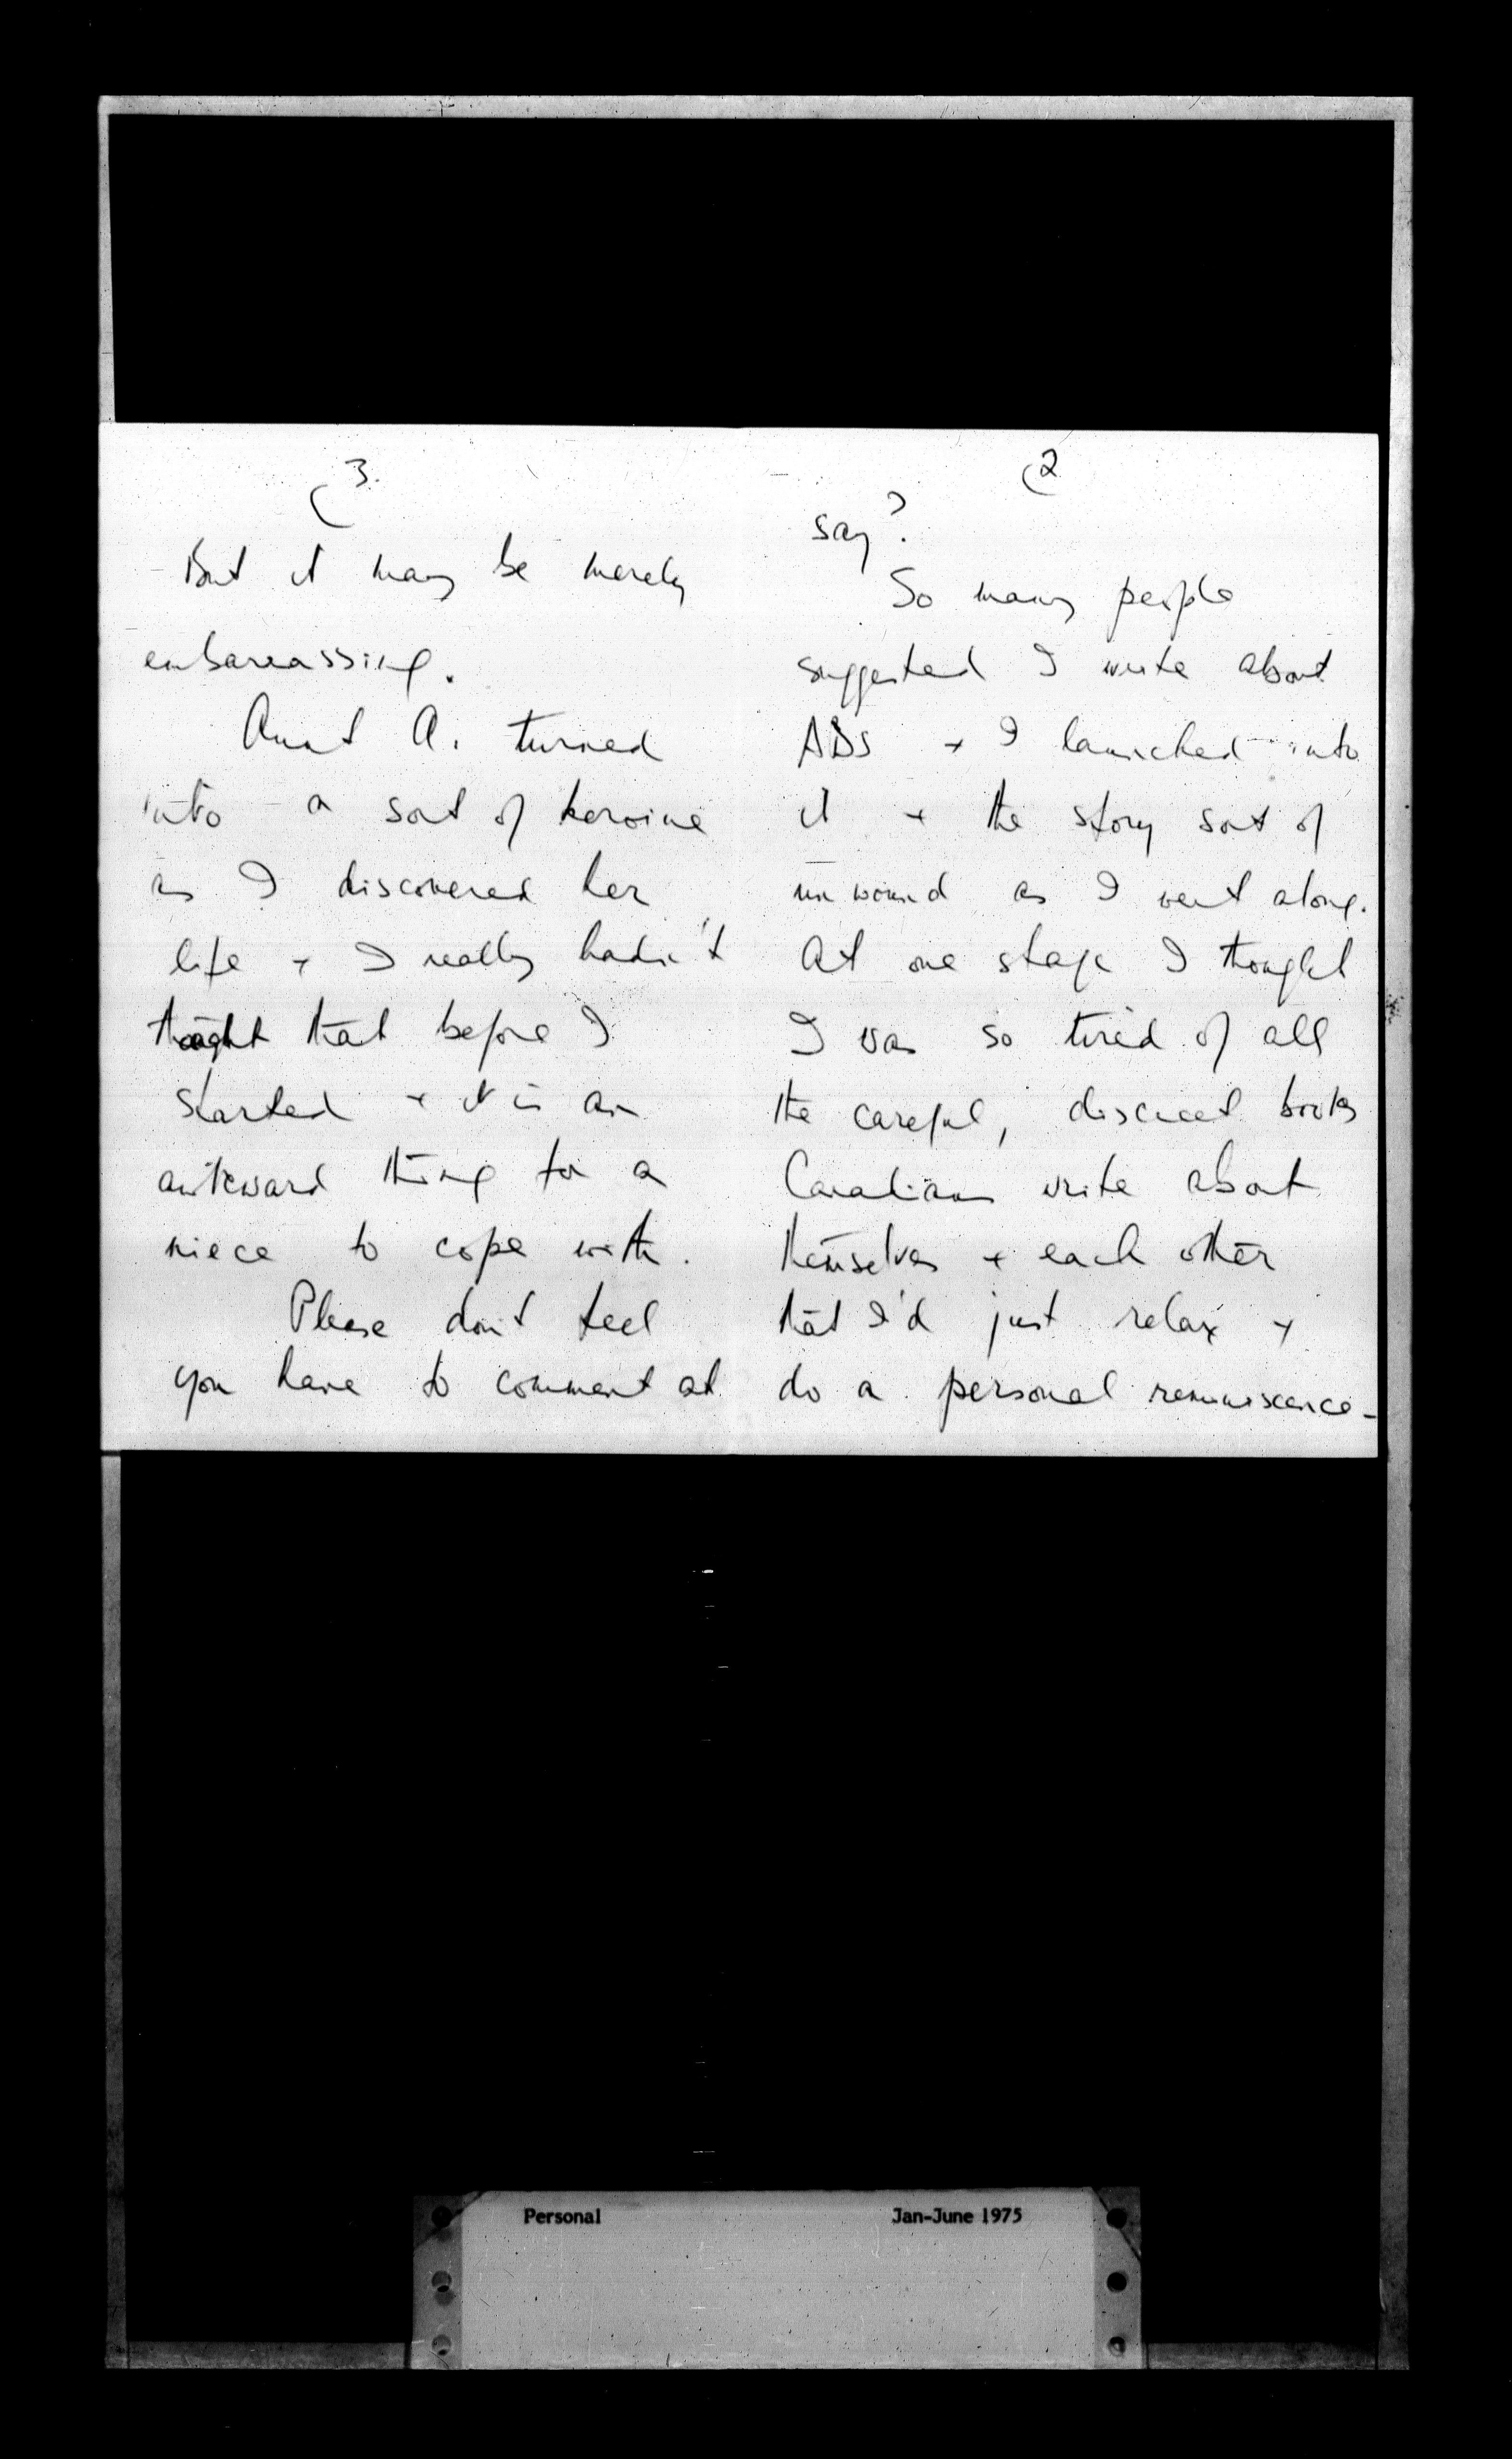 (2
say?
So many people
suggested I write about
ABS + I launched into
it + the story sort of
unwound as I went along.
At one stage I thought
I was so tired of all
the careful, discreet books
Canadians write about
themselves + each other
that I'd just relax +
do a personal reminiscence -
(3.
But it may be merely
embarrassing.
Aunt A. turned
into a sort of heroine
as I discovered her
life + I really hadn't
thought that before I
started + it is an
awkward thing for a
niece to cope with.
Please don't feel
you have to comment at
Personal Jan-June 1975